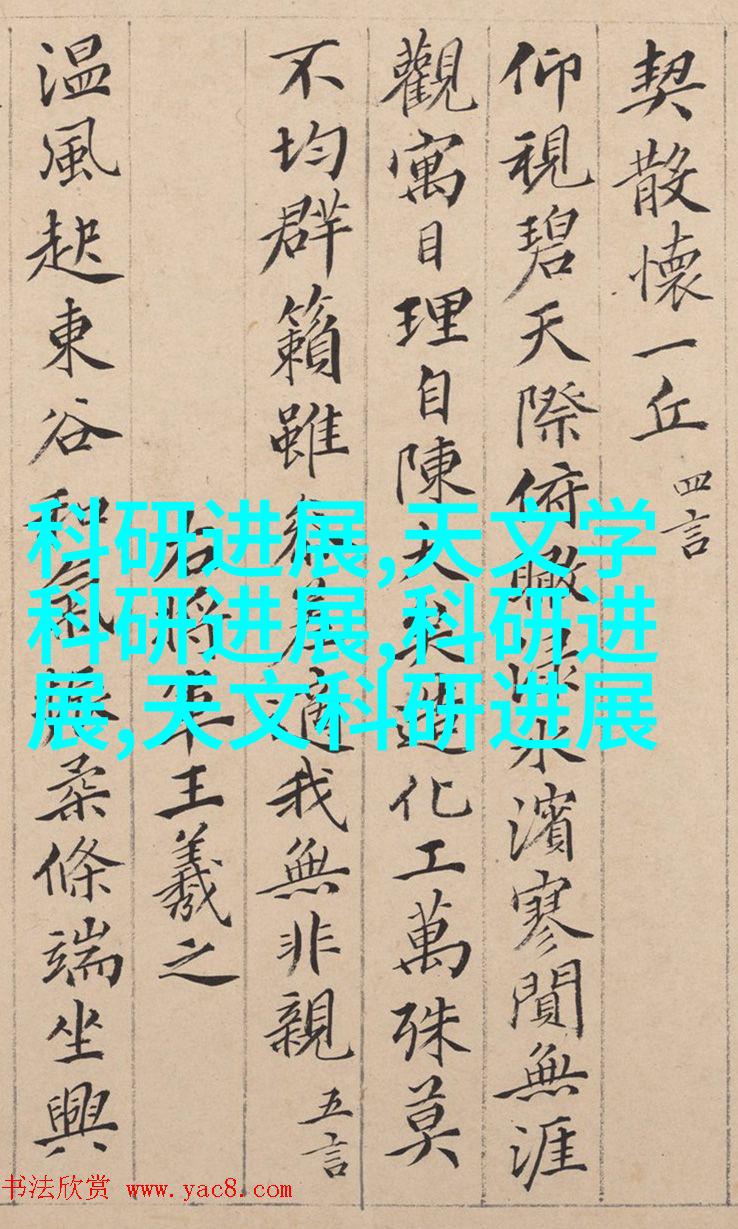 契散懷一丘 四言
仰視碧天際俯瞰淥水濱寥閴無涯
觀寓目理自陳大矣造化工萬殊莫
不均群籟雖參差適我無非親 五言
右將軍王羲之
温風起東谷和氣振柔條端坐興
科研进展,天文学
科研进展,科研进
展,天文科研进展
书法欣赏 www.yac8.com